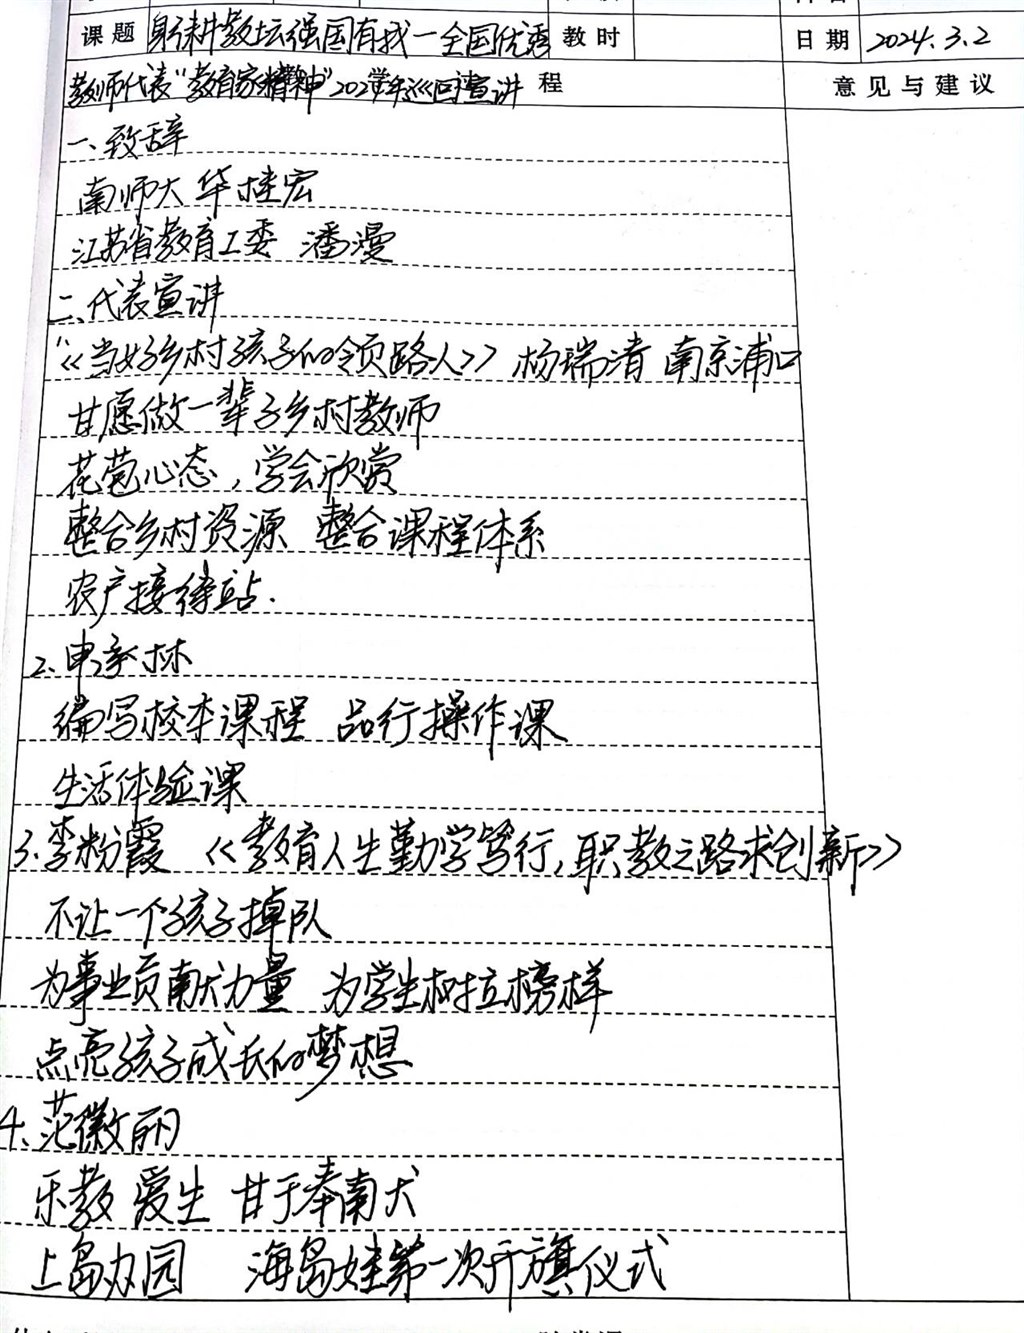 课题 躬耕教坛强国有我一全国优秀 教时 日期 2024.3.2
教师代表"教育家精神"202学年巡回宣讲 程 意见与建议
一、致辞
南师大 华桂宏
江苏省教育工委 潘漫
二、代表宣讲
"《当好乡村孩子的领路人》 杨瑞清 南京浦口
甘愿做一辈子乡村教师
花苞心态,学会欣赏
整合乡村资源 整合课程体系
农户接待站.
2、申承林
编写校本课程 品行操作课
生活体验课
3.李粉霞 《教育人生勤学笃行,职教之路求创新》
不让一个孩子掉队
为事业贡献力量 为学生树立榜样
点亮孩子成长的梦想
4、范徽丽
乐教 爱生 甘于奉献
上岛办园 海岛娃第一次升旗仪式